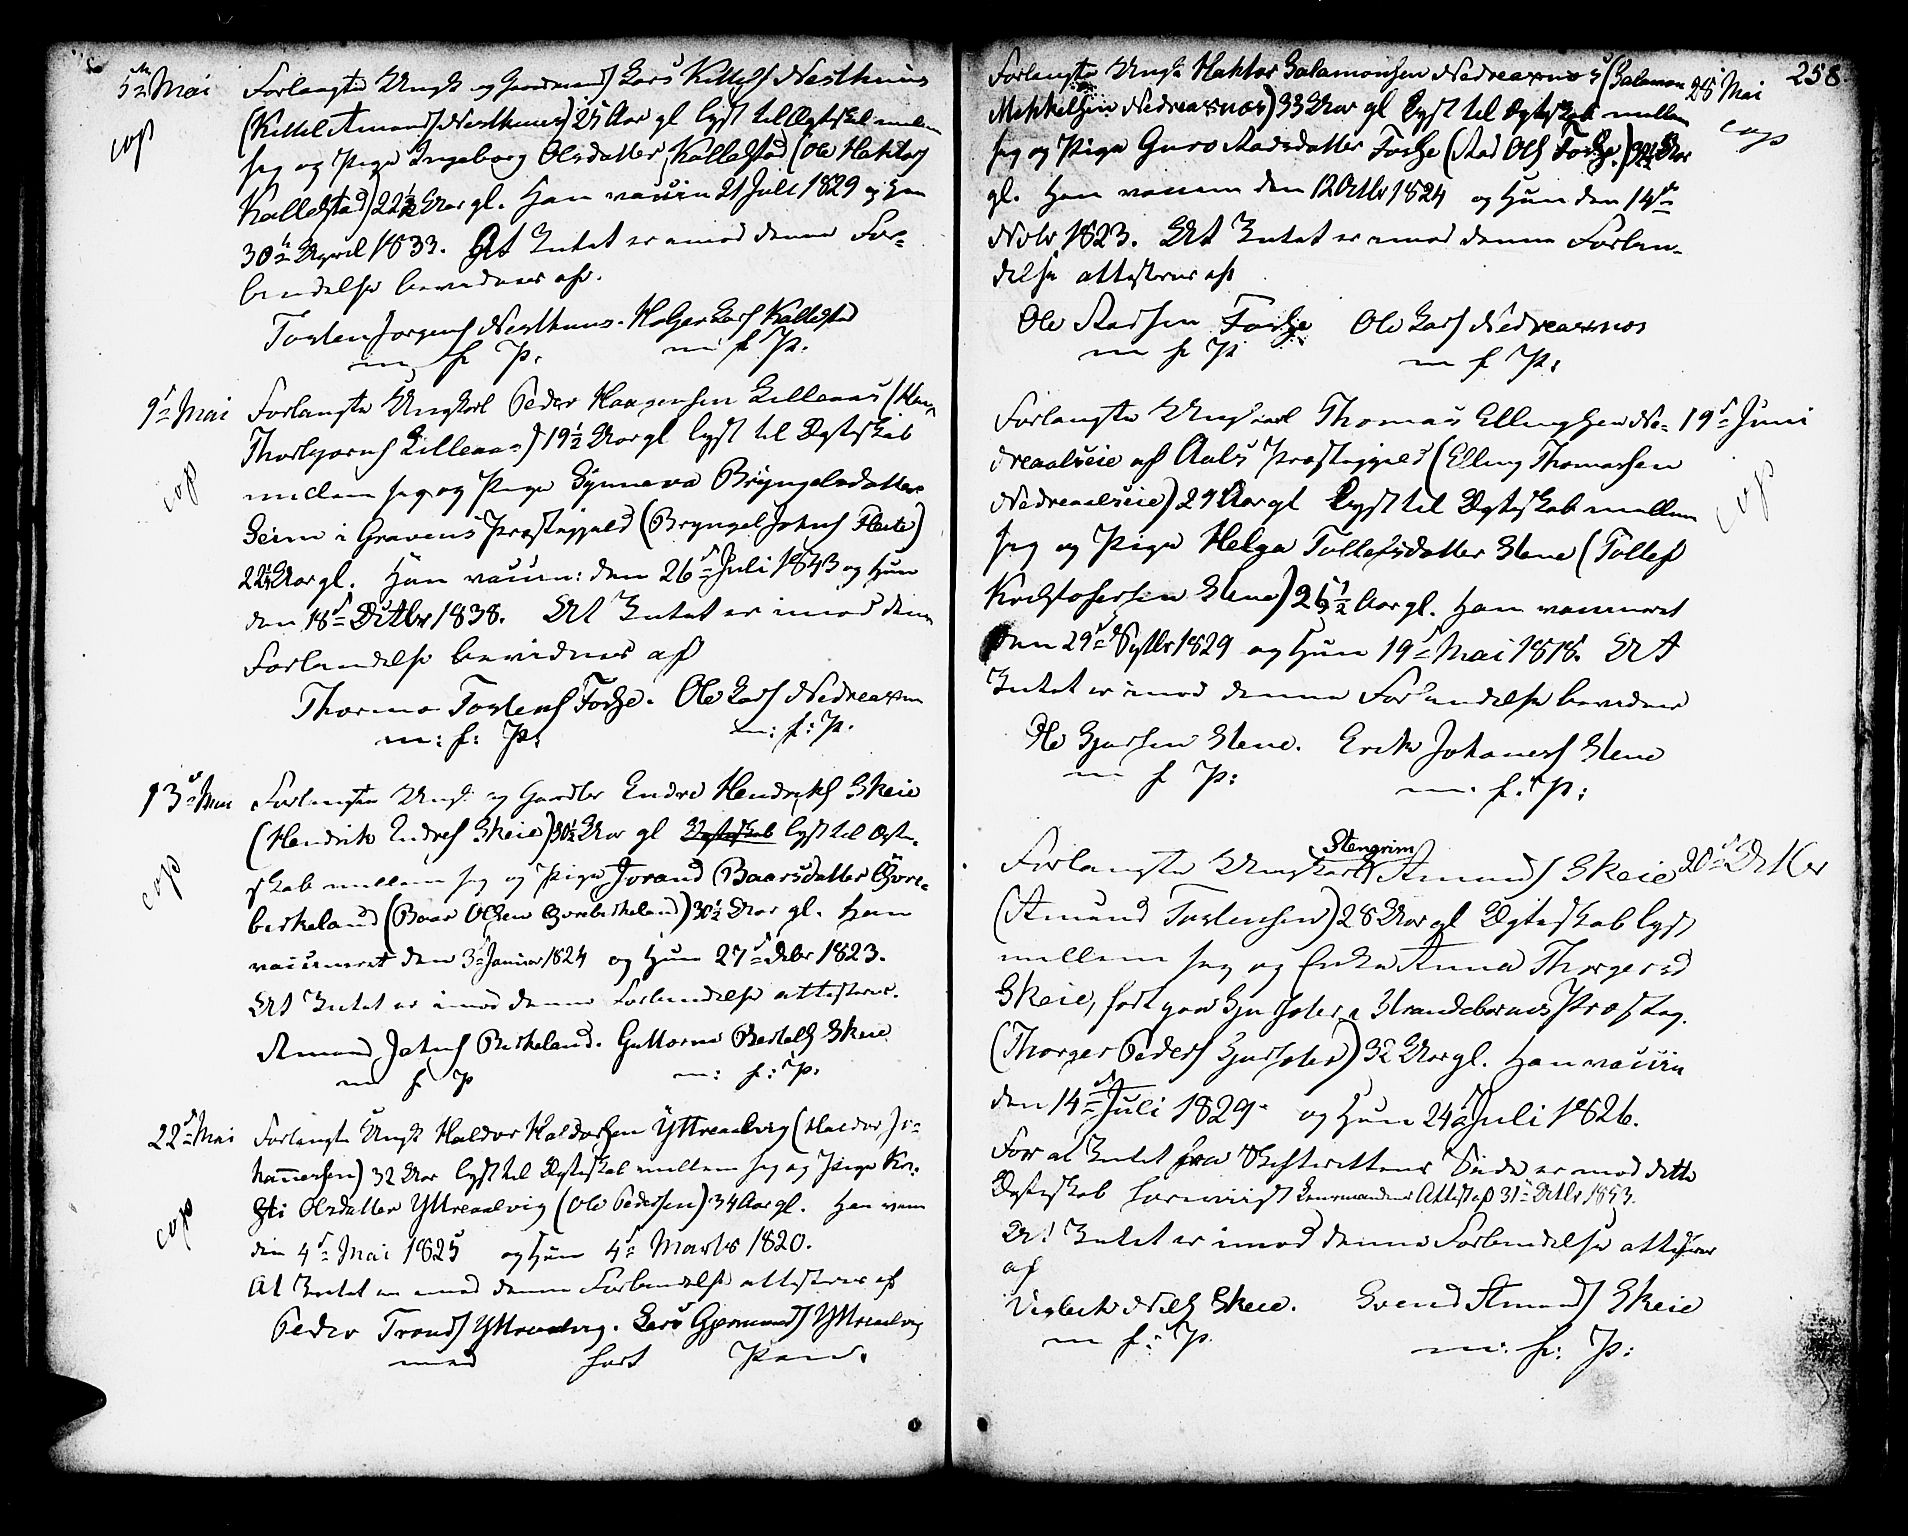 5te Mai Forlangte Ungk og Gaardmand Lars Kittels Nesthuus
cop (Kittel Amunds Nesthuus) 25 Aar gl lyst til Ægteskab mellem
sig og Pige Ingeborg Olsdatter Kallestad (Ole Haktors
Kallestad) 22½ Aar gl. Han vaccin 21 Juli 1829 og Hun
30te April 1833. At Intet er imod denne For-
bindelse bevidnes af.
Torsten Jorgens Nesthuus. Holger Lars Kallestad
m f P. m f P.
9de Mai Forlangte Ungkarl Peder Haagensen Lilleaas (Haag
Thorbjorns Lilleaas) 19½ Aar gl lyst til Ægteskab
cop mellem sig og Pige Synneva Bryngelsdatter
Seim i Gravens Præstegjeld (Bryngel Johns Fleite)
22½ Aar gl. Han vaccin: den 26de Juli 1843 og Hun
den 18de Octbr 1838. At Intet er imod denne
Forbindelse bevidnes af
Thormo Torstens Fosse. Ole Lars Nedreaasnes
m: f: P: m: f: P.
13de Mai Forlangte Ungk og Gaardbr Endre Hendriks Skeie
(Hendrik Endres Skeie) 30½ Aar gl Ægteskab lyst til Ægte-
cop skab mellem sig og Pige Jorand Baarsdatter Øvre-
berkeland (Baar Olsen Øvreberkeland) 30½ Aar gl. Han
vaccineret den 3de Januar 1824 og Hun 27de Debr 1823.
At Intet er imod denne Forbindelse attesteres.
Amund Johns Berkeland. Guttorm Bertels Skeie
m f P m: f: P.
22de Mai Forlangte Ungk Haldor Haldorsen Yttreaalvig (Haldor Jo-
hannessen) 32 Aar lyst til Ægteskab mellem sig og Pige Kri-
cop sti Olsdatter Yttreaalvig (Ole Pedersen) 34 Aar gl. Han vacc
den 4de Mai 1825 og Hun 4de Marts 1820.
At Intet er imod denne Forbindelse attesteres af
Peder Tronds Yttreaalvig. Lars Gjermunds Yttreaalvig
med fort Pen.
258
Forlangte Ungk Haktor Salamonsen Nedreaasnes (Salamon 28 Mai
Mikkelsen Nedreaasnes) 33 Aar gl lyst til Ægteskab mellem cop
sig og Pige Guro Aadsdatter Fosse (Aad Ols Fosse) 32½ Aar
gl. Han vaccin den 12 Octbr 1824 og Hun den 14de
Nobr 1823. At Intet er imod denne Forbin-
delse attesteres af
Ole Aadsen Fosse Ole Lars Nedreaasnes
m f P m f P:
Forlangte Ungkarl Thomas Ellingsen Ne- 19de Juni
dreaalseie af Aals Præstegjeld (Elling Thomassen
Nedreaalseie) 29 Aar gl lyst til Ægteskab mellem cop
sig og Pige Helga Tollefsdatter Stene (Tollef
Kristofersen Stene) 26½ Aar gl. Han vaccineret
den 29de Sptbr 1829 og Hun 19de Mai 1818. At
Intet er imod denne Forbindelse bevidner
Ole Sjursen Stene. Erik Johaness Stene
m f P: m. f. P:
Stengrim
Forlangte Ungkarl Amunds Skeie 20de Octbr
(Amund Torstensen) 28 Aar gl Ægteskab lyst
mellem sig og Enke Anna Thorgersd
Skeie, født paa i Strandebarms Præsteg.
(Thorger Peders) 32 Aar gl. Han vaccin
den 14de Juli 1829 og Hun 24de Juli 1826.
For at Intet fra Skifterettens Side er imod dette
Ægteskab forevist Lensmandens Attest af 31te Octbr 1853.
At Intet er imod denne Forbindelse attesterer
af
Viglek Nils Skeie. Svend Amunds Skeie
m f: P. m: f: P: